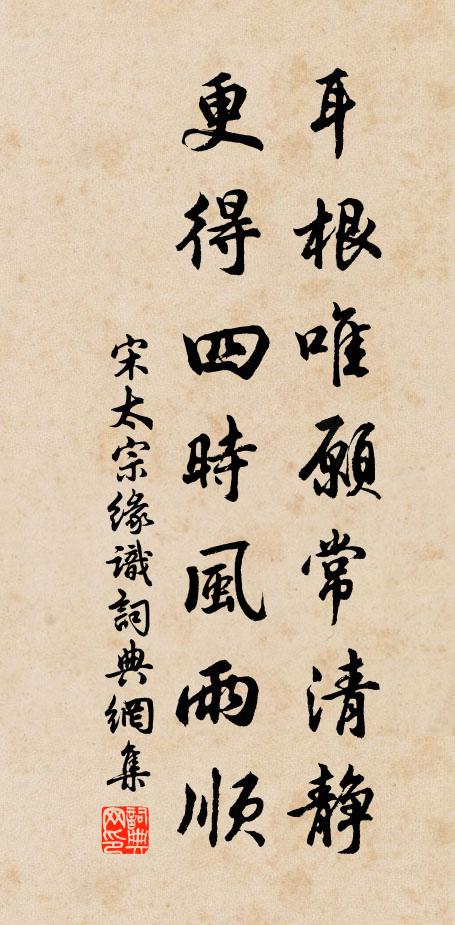 耳根唯願常清静
更得四時風雨順
宋太宗緣識詞典網集
詞典网印